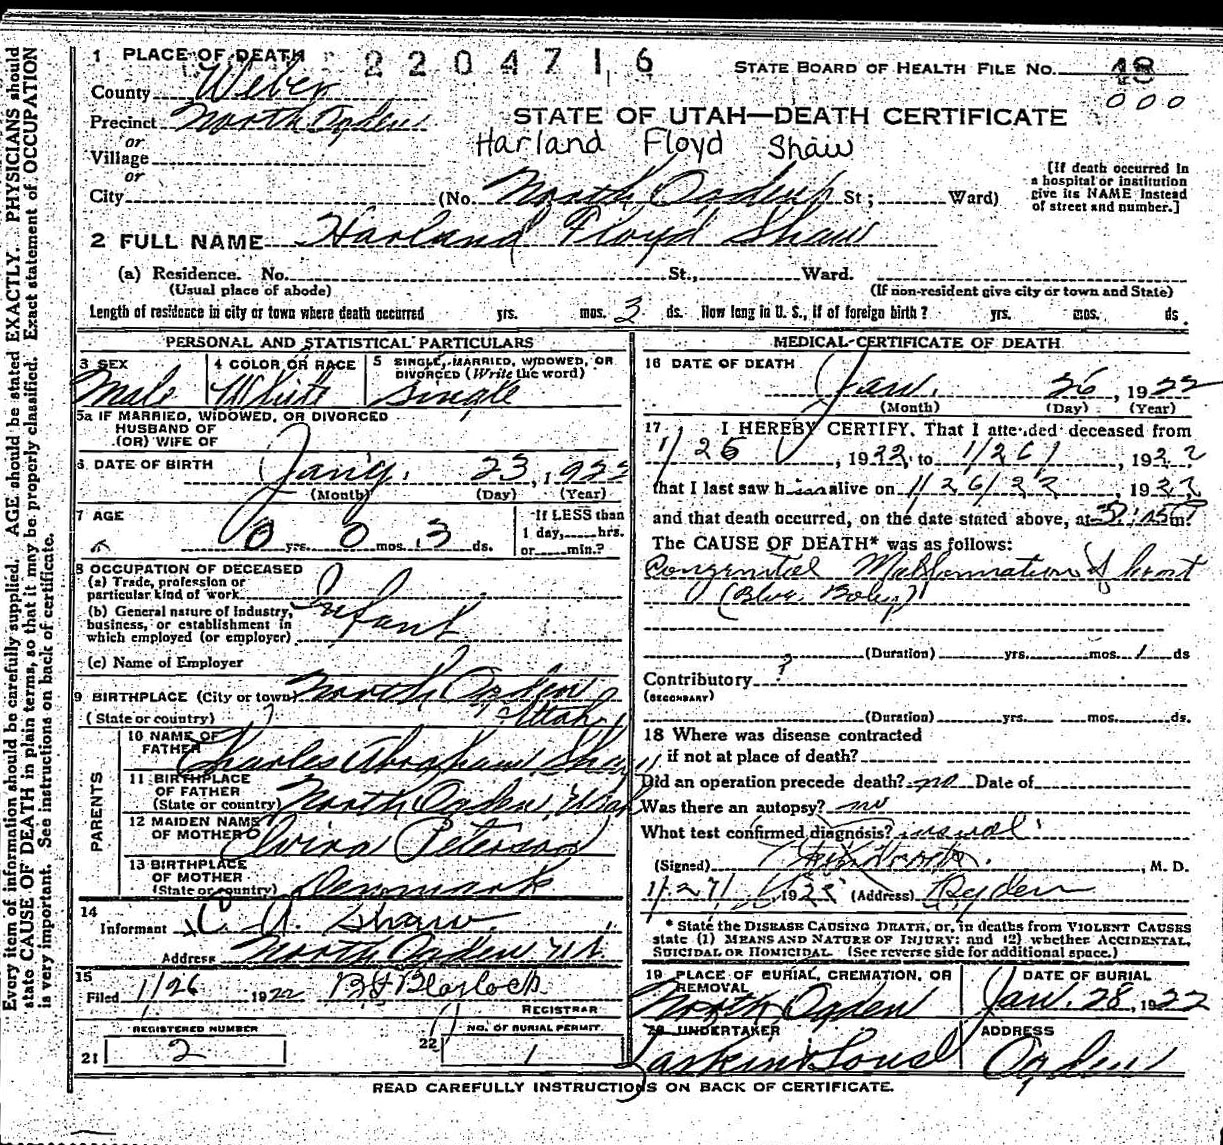 Every item of information should be carefully supplied. AGE should be stated EXACTLY. PHYSICIANS should
state CAUSE OF DEATH in plain terms, so that it may be properly classified. Exact statement of OCCUPATION
is very important. See instructions on back of certificate.
1 PLACE OF DEATH 2204716 STATE BOARD OF HEALTH FILE No. 48
County Weber 000
Precinct North Ogden STATE OF UTAH—DEATH CERTIFICATE
or Harland Floyd Shaw
Village
or
City (No. North Ogden St; Ward)
[If death occurred in
a hospital or institution
give its NAME instead
of street and number.]
2 FULL NAME Harland Floyd Shaw
(a) Residence. No. St., Ward.
(Usual place of abode) (If non-resident give city or town and State)
Length of residence in city or town where death occurred yrs. mos. 3 ds. How long in U. S., if of foreign birth? yrs. mos. ds.
PERSONAL AND STATISTICAL PARTICULARS
3 SEX 4 COLOR OR RACE 5 SINGLE, MARRIED, WIDOWED, OR
DIVORCED (Write the word)
Male White Single
5a IF MARRIED, WIDOWED, OR DIVORCED
HUSBAND OF
(OR) WIFE OF
6. DATE OF BIRTH Jany. 23, 1922
(Month) (Day) (Year)
7 AGE If LESS than
0 yrs. 0 mos. 3 ds. 1 day, hrs.
or min.?
8 OCCUPATION OF DECEASED
(a) Trade, profession or
particular kind of work Infant
(b) General nature of industry,
business, or establishment in
which employed (or employer)
(c) Name of Employer
9 BIRTHPLACE (City or town) North Ogden
(State or country) Utah
PARENTS
10 NAME OF
FATHER Charles Abraham Shaw
11 BIRTHPLACE
OF FATHER
(State or country) North Ogden, Utah
12 MAIDEN NAME
OF MOTHER Peterson
13 BIRTHPLACE
OF MOTHER
(State or country) Denmark
14
Informant C. A. Shaw
Address North Ogden Ut.
15
Filed 1/26 1922 B F Blaylock
REGISTRAR
REGISTERED NUMBER NO. OF BURIAL PERMIT
21 2 22 1
MEDICAL CERTIFICATE OF DEATH
16 DATE OF DEATH
Jan. 26, 1922
(Month) (Day) (Year)
17 I HEREBY CERTIFY, That I attended deceased from
1/26, 1922, to 1/26/, 1922
that I last saw him alive on 1/26/22 1922
and that death occurred, on the date stated above, at m?
The CAUSE OF DEATH* was as follows:
Congenital Malformation of heart
(Blue Baby)
(Duration) yrs. mos. 1 ds
Contributory ?
(SECONDARY)
(Duration) yrs. mos. ds.
18 Where was disease contracted
if not at place of death?
Did an operation precede death? no Date of
Was there an autopsy? no
What test confirmed diagnosis?
(Signed) , M. D.
1/27/ 1922 (Address) Ogden
* State the DISEASE CAUSING DEATH, or, in deaths from VIOLENT CAUSES
state (1) MEANS AND NATURE OF INJURY; and (2) whether ACCIDENTAL,
SUICIDAL OR HOMICIDAL. (See reverse side for additional space.)
19 PLACE OF BURIAL, CREMATION, OR
REMOVAL DATE OF BURIAL
North Ogden Jan. 28, 1922
20 UNDERTAKER ADDRESS
Larkin & Sons Ogden
READ CAREFULLY INSTRUCTIONS ON BACK OF CERTIFICATE.